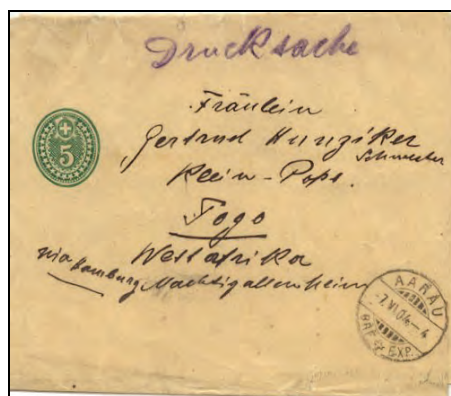 Drucksache
Fräulein
Gertrud Hunziker
Schwester
Klein-Popo.
Togo
Westafrika
via Hamburg Nachtigallenheim
5
AARAU
7.VI.04-4
BRF. EXP.